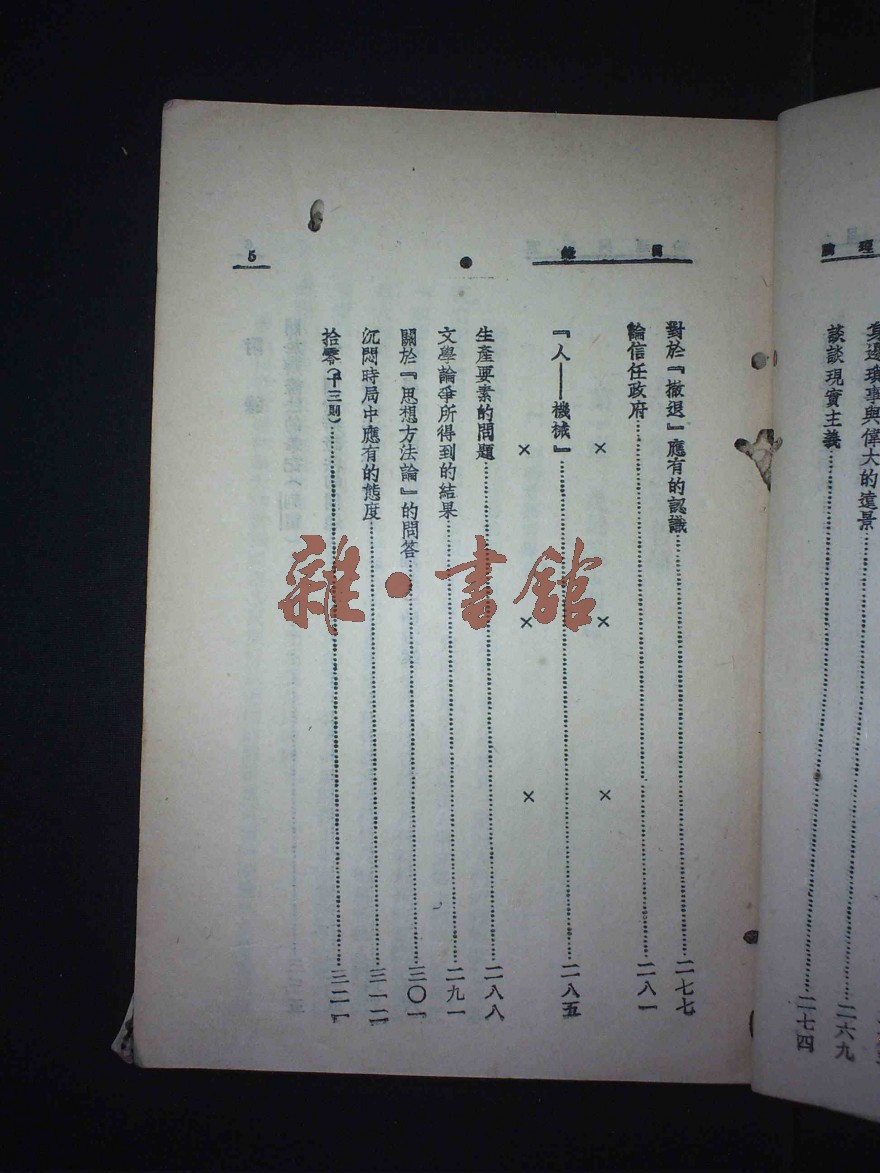 理論
身邊瑣事與偉大的遠景……二六九
談談現實主義……二七四
目錄
5
對於『撤退』應有的認識……二七七
論信任政府……二八一
× × ×
『人——機械』……二八五
× × ×
生產要素的問題……二八八
文學論爭所得到的結果……二九一
關於『思想方法論』的問答……三〇一
沉悶時局中應有的態度……三一二
拾零(十三則)……三二一
雜·書館